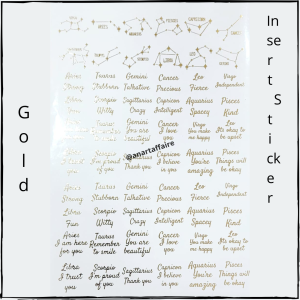 Gold
Insert Sticker
@anartaffaire
Aries Taurus Gemini Cancer Leo Virgo
Strong Stubborn Talkative Precious Fierce Independent
Libra Scorpio Sagittarius Capricorn Aquarius Pisces
Fun Witty Crazy Intelligent Spaces Kind
Taurus Gemini Cancer Leo Virgo
You are beautiful I love you You make me happy It's okay to be upset
Scorpio Sagittarius Capricorn Aquarius Pisces
I'm proud of you Thank you I believe in you You're amazing Things will be okay
Aries Taurus Gemini Cancer Leo Virgo
Strong Stubborn Talkative Precious Fierce Independent
Libra Scorpio Sagittarius Capricorn Aquarius Pisces
Fun Witty Crazy Intelligent Spaces Kind
Aries Taurus Gemini Cancer Leo Virgo
I am here for you Remember to smile You are beautiful I love you You make me happy It's okay to be upset
Libra Scorpio Sagittarius Capricorn Aquarius Pisces
I trust you I'm proud of you Thank you I believe in you You're amazing Things will be okay